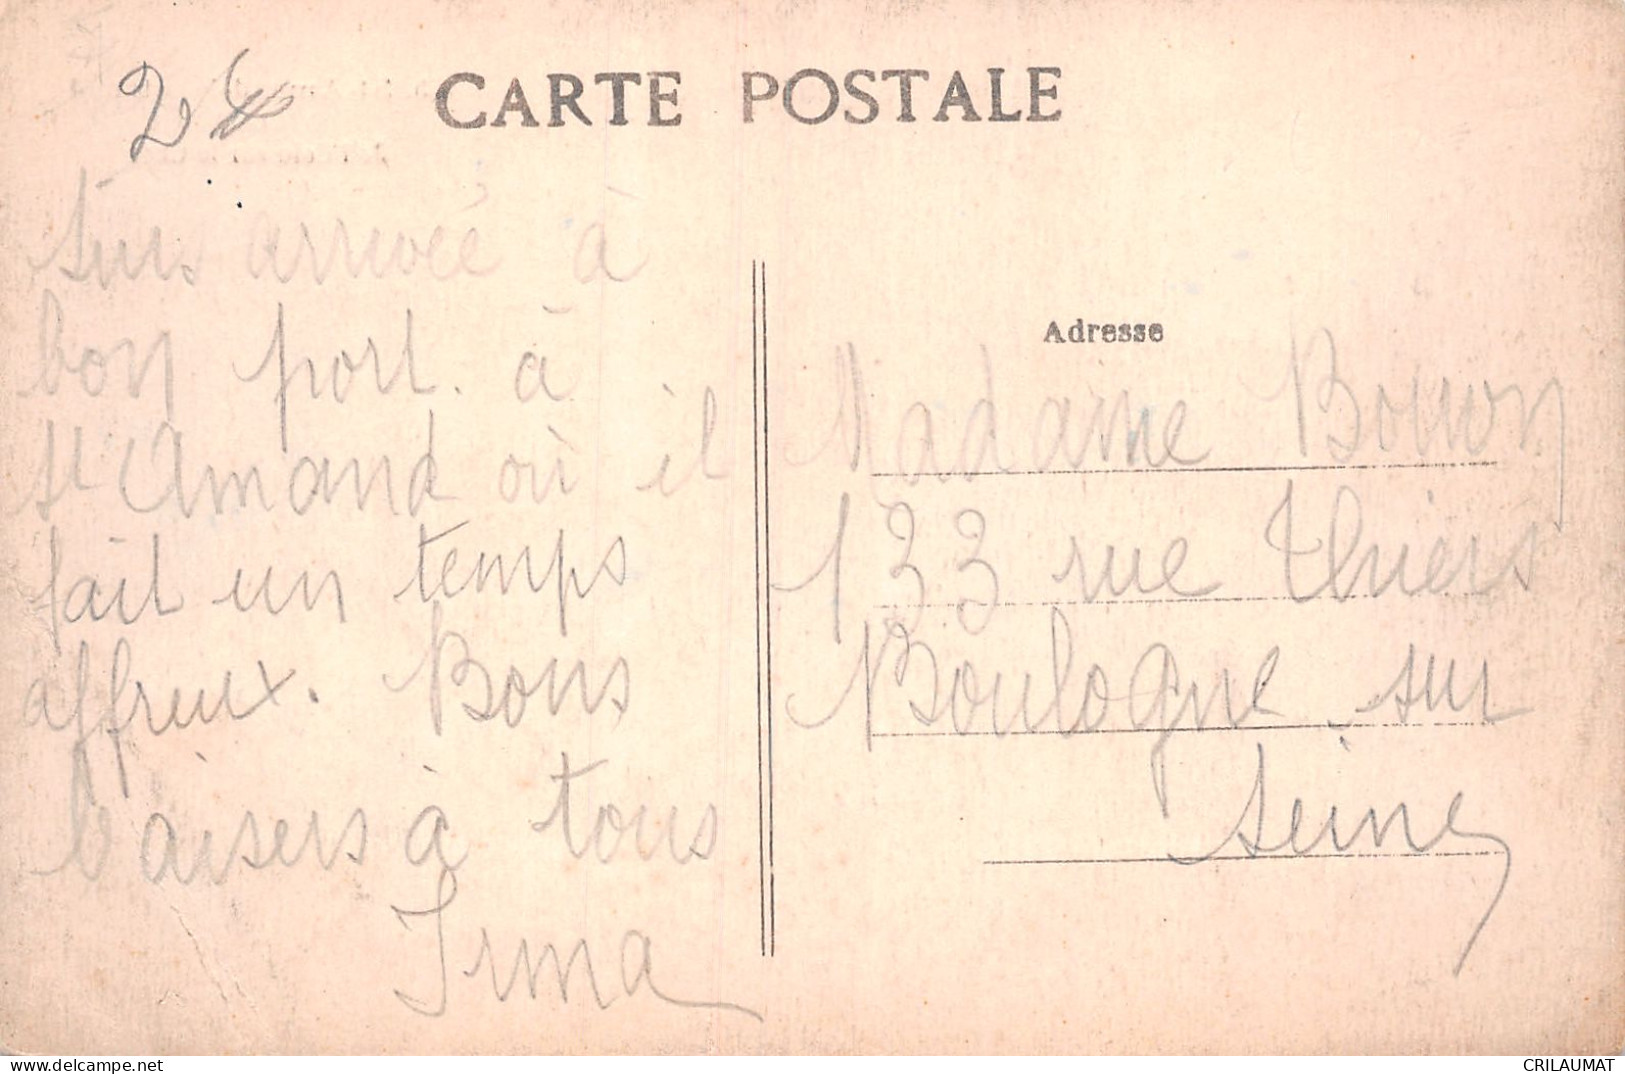 CARTE POSTALE
Suis arrivée à
bon port. à
St Amand où il
fait un temps
affreux. Bons
baisers à tous
Irma
Adresse
Madame Bouvon
133 rue Thiers
Boulogne sur
Seine
www.delcampe.net
CRILAUMAT